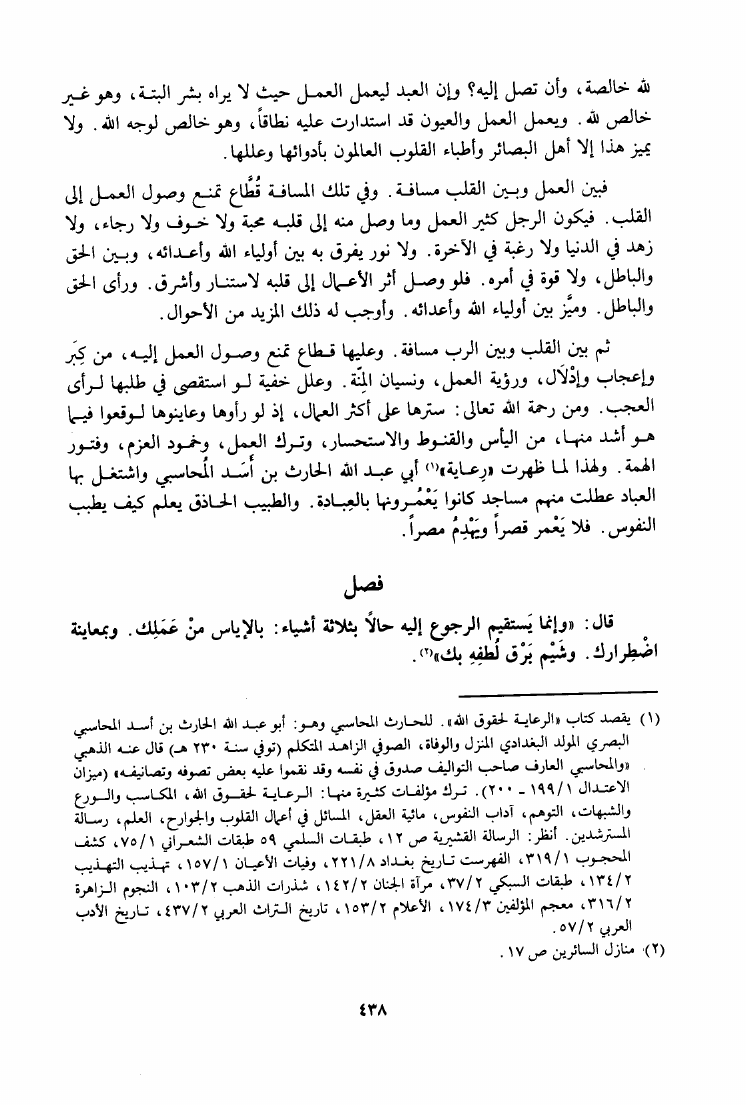 لله خالصة، وأن تصل إليه؟ وإن العبد ليعمل العمل حيث لا يراه بشر البتة، وهو غير
خالص لله. ويعمل العمل والعيون قد استدارت عليه نطاقاً، وهو خالص لوجه الله. ولا
يميز هذا إلا أهل البصائر وأطباء القلوب العالمون بأدوائها وعللها.
فبين العمل وبين القلب مسافة. وفي تلك المسافة قُطَّاع تمنع وصول العمل إلى
القلب. فيكون الرجل كثير العمل وما وصل منه إلى قلبه محبة ولا خوف ولا رجاء، ولا
زهد في الدنيا ولا رغبة في الآخرة. ولا نور يفرق به بين أولياء الله وأعدائه، وبين الحق
والباطل، ولا قوة في أمره. فلو وصل أثر الأعمال إلى قلبه لاستنار وأشرق. ورأى الحق
والباطل. وميَّز بين أولياء الله وأعدائه. وأوجب له ذلك المزيد من الأحوال.
ثم بين القلب وبين الرب مسافة. وعليها قطاع تمنع وصول العمل إليه، من كِبَر
وإعجاب وإدْلَال، ورؤية العمل، ونسيان المِنّة. وعلل خفية لو استقصى في طلبها لرأى
العجب. ومن رحمة الله تعالى: سترها على أكثر العمال، إذ لو رأوها وعاينوها لوقعوا فيما
هو أشد منها، من اليأس والقنوط والاستحسار، وترك العمل، وخمود العزم، وفتور
الهمة. ولهذا لما ظهرت «رِعاية»(١) أبي عبد الله الحارث بن أَسَد المُحاسبي واشتغل بها
العباد عطلت منهم مساجد كانوا يَعْمُرونها بالعِبادة. والطبيب الحاذق يعلم كيف يطبب
النفوس. فلا يَعْمر قصراً ويَهْدِمُ مصراً.
فصل
قال: «وإنما يَستقيم الرجوع إليه حالاً بثلاثة أشياء: بالإياس منْ عَمَلِك. وبمعاينة
اضْطِرارك. وشَيْم بَرْق لُطفِهِ بك»(٢).
(١) يقصد كتاب «الرعاية لحقوق الله». للحارث المحاسبي وهو: أبو عبد الله الحارث بن أسد المحاسبي
البصري المولد البغدادي المنزل والوفاة، الصوفي الزاهد المتكلم (توفي سنة ٢٣٠ هـ) قال عنه الذهبي
«والمحاسبي العارف صاحب التواليف صدوق في نفسه وقد نقموا عليه بعض تصوفه وتصانيفه» (ميزان
الاعتدال ١٩٩/١ - ٢٠٠). ترك مؤلفات كثيرة منها: الرعاية لحقوق الله، المكاسب والورع
والشبهات، التوهم، آداب النفوس، مائية العقل، المسائل في أعمال القلوب والجوارح، العلم، رسالة
المسترشدين. أنظر: الرسالة القشيرية ص ١٢، طبقات السلمي ٥٩ طبقات الشعراني ٧٥/١، كشف
المحجوب ٣١٩/١، الفهرست تاريخ بغداد ٢٢١/٨، وفيات الأعيان ١٥٧/١، تهذيب التهذيب
١٣٤/٢، طبقات السبكي ٣٧/٢، مرآة الجنان ١٤٢/٢، شذرات الذهب ١٠٣/٢، النجوم الزاهرة
٣١٦/٢، معجم المؤلفين ١٧٤/٣، الأعلام ١٥٣/٢، تاريخ التراث العربي ٤٣٧/٢، تاريخ الأدب
العربي ٥٧/٢.
(٢) منازل السائرين ص ١٧.
٤٣٨